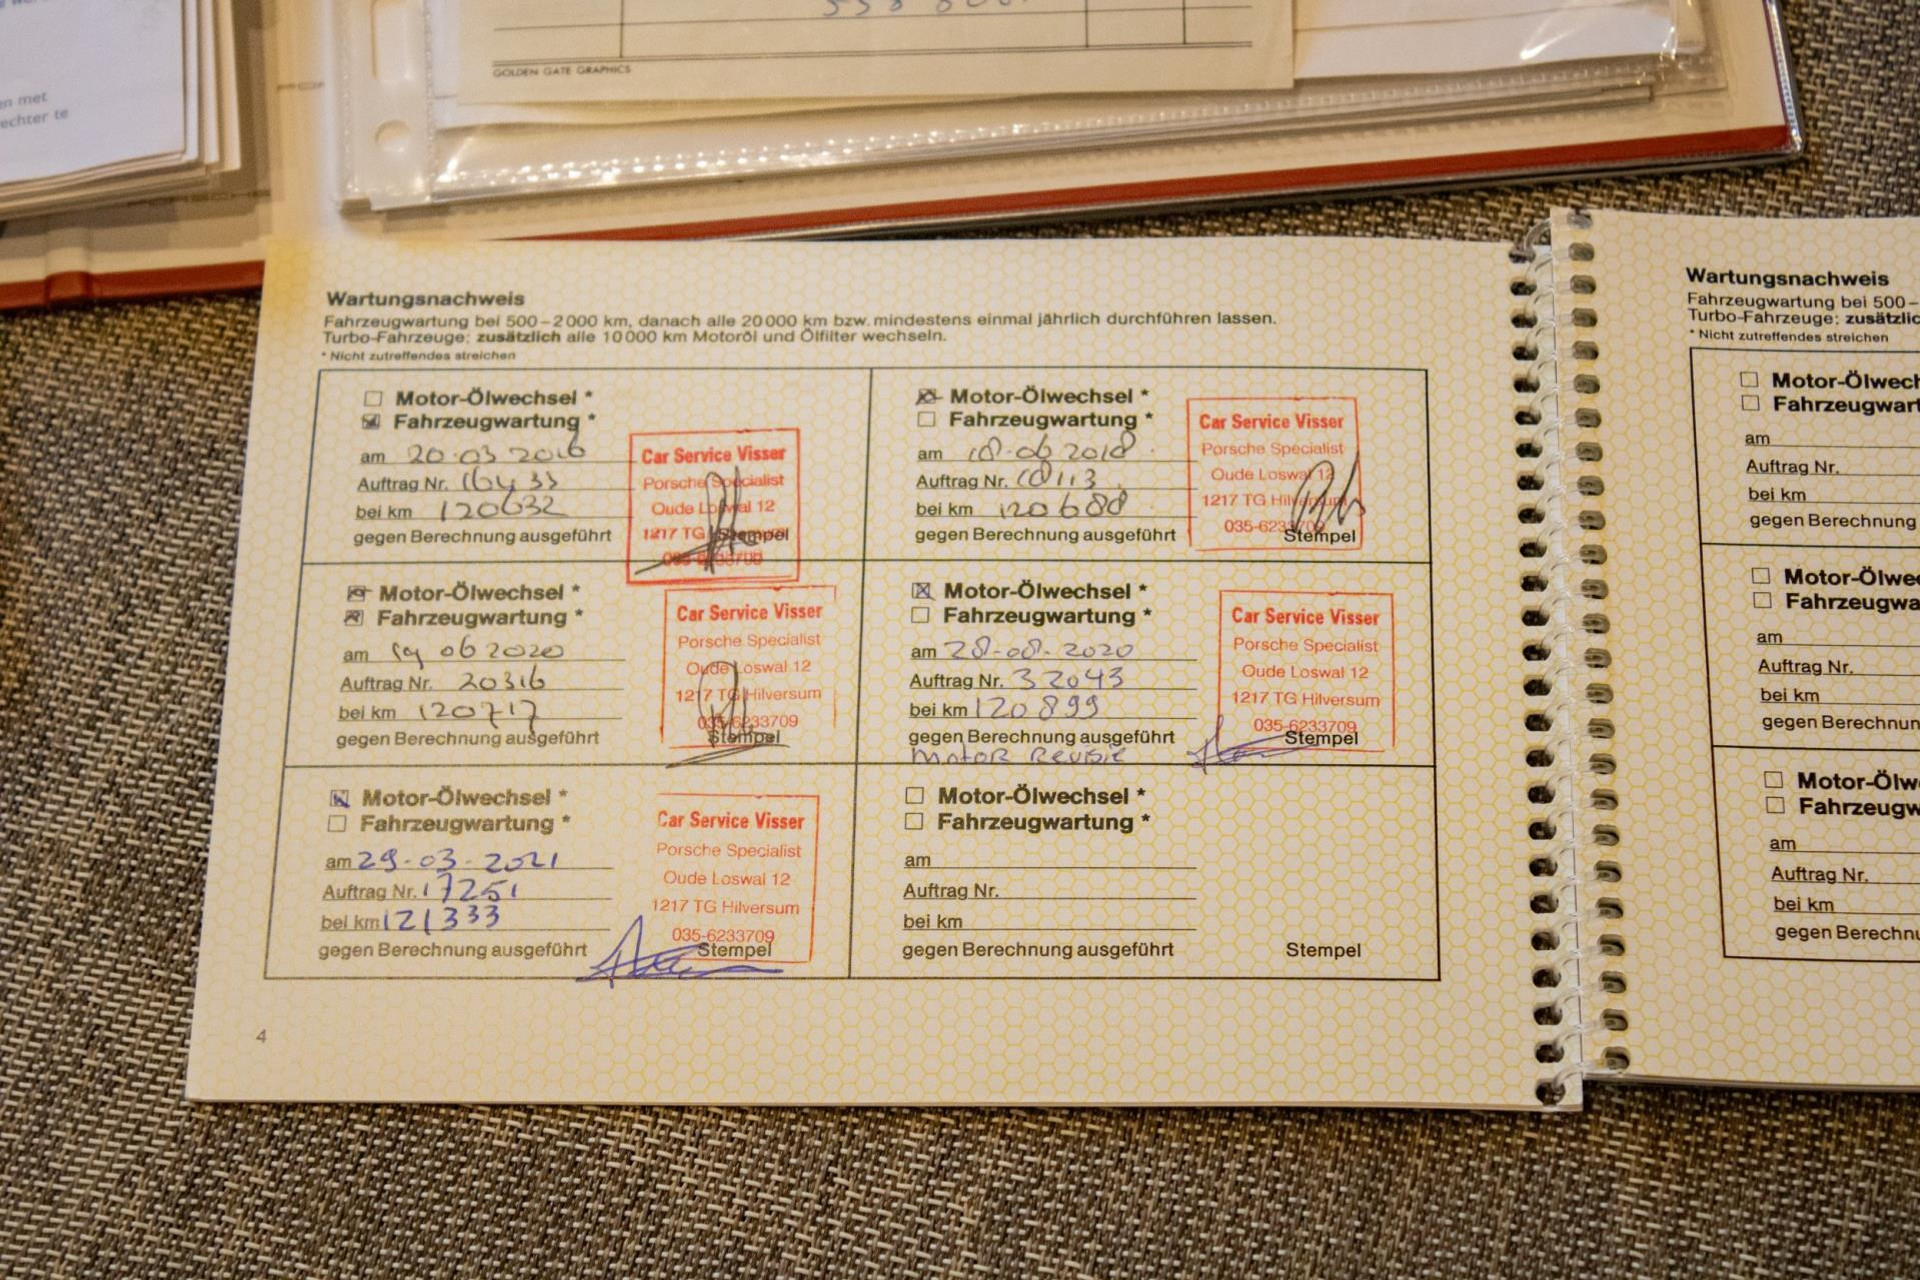 558 800.
GOLDEN GATE GRAPHICS
en met
echter te
Wartungsnachweis
Fahrzeugwartung bei 500–2000 km, danach alle 20000 km bzw. mindestens einmal jährlich durchführen lassen.
Turbo-Fahrzeuge: zusätzlich alle 10000 km Motoröl und Ölfilter wechseln.
* Nicht zutreffendes streichen
Motor-Ölwechsel *
Fahrzeugwartung *
am 20-03 2016
Auftrag Nr. 16433
bei km 120632
gegen Berechnung ausgeführt
Car Service Visser
Porsche Specialist
Oude Loswal 12
1217 TG
Stempel
035-6233709
Motor-Ölwechsel *
Fahrzeugwartung *
am 18-06 2018
Auftrag Nr. 18113
bei km 120688
gegen Berechnung ausgeführt
Car Service Visser
Porsche Specialist
Oude Loswal 12
1217 TG Hilversum
035-6233709
Stempel
Motor-Ölwechsel *
Fahrzeugwartung *
am 19 06 2020
Auftrag Nr. 20316
bei km 120717
gegen Berechnung ausgeführt
Car Service Visser
Porsche Specialist
Oude Loswal 12
1217 TG Hilversum
035-6233709
Stempel
Motor-Ölwechsel *
Fahrzeugwartung *
am 28-08-2020
Auftrag Nr. 32043
bei km 120899
gegen Berechnung ausgeführt
Motor Revisie
Car Service Visser
Porsche Specialist
Oude Loswal 12
1217 TG Hilversum
035-6233709
Stempel
Motor-Ölwechsel *
Fahrzeugwartung *
am 29-03-2021
Auftrag Nr. 17251
bei km 121333
gegen Berechnung ausgeführt
Car Service Visser
Porsche Specialist
Oude Loswal 12
1217 TG Hilversum
035-6233709
Stempel
Motor-Ölwechsel *
Fahrzeugwartung *
am
Auftrag Nr.
bei km
gegen Berechnung ausgeführt
Stempel
4
Wartungsnachweis
Fahrzeugwartung bei 500–
Turbo-Fahrzeuge: zusätzlic
* Nicht zutreffendes streichen
Motor-Ölwech
Fahrzeugwart
am
Auftrag Nr.
bei km
gegen Berechnung
Motor-Ölwe
Fahrzeugwa
am
Auftrag Nr.
bei km
gegen Berechnun
Motor-Ölw
Fahrzeugw
am
Auftrag Nr.
bei km
gegen Berechnu